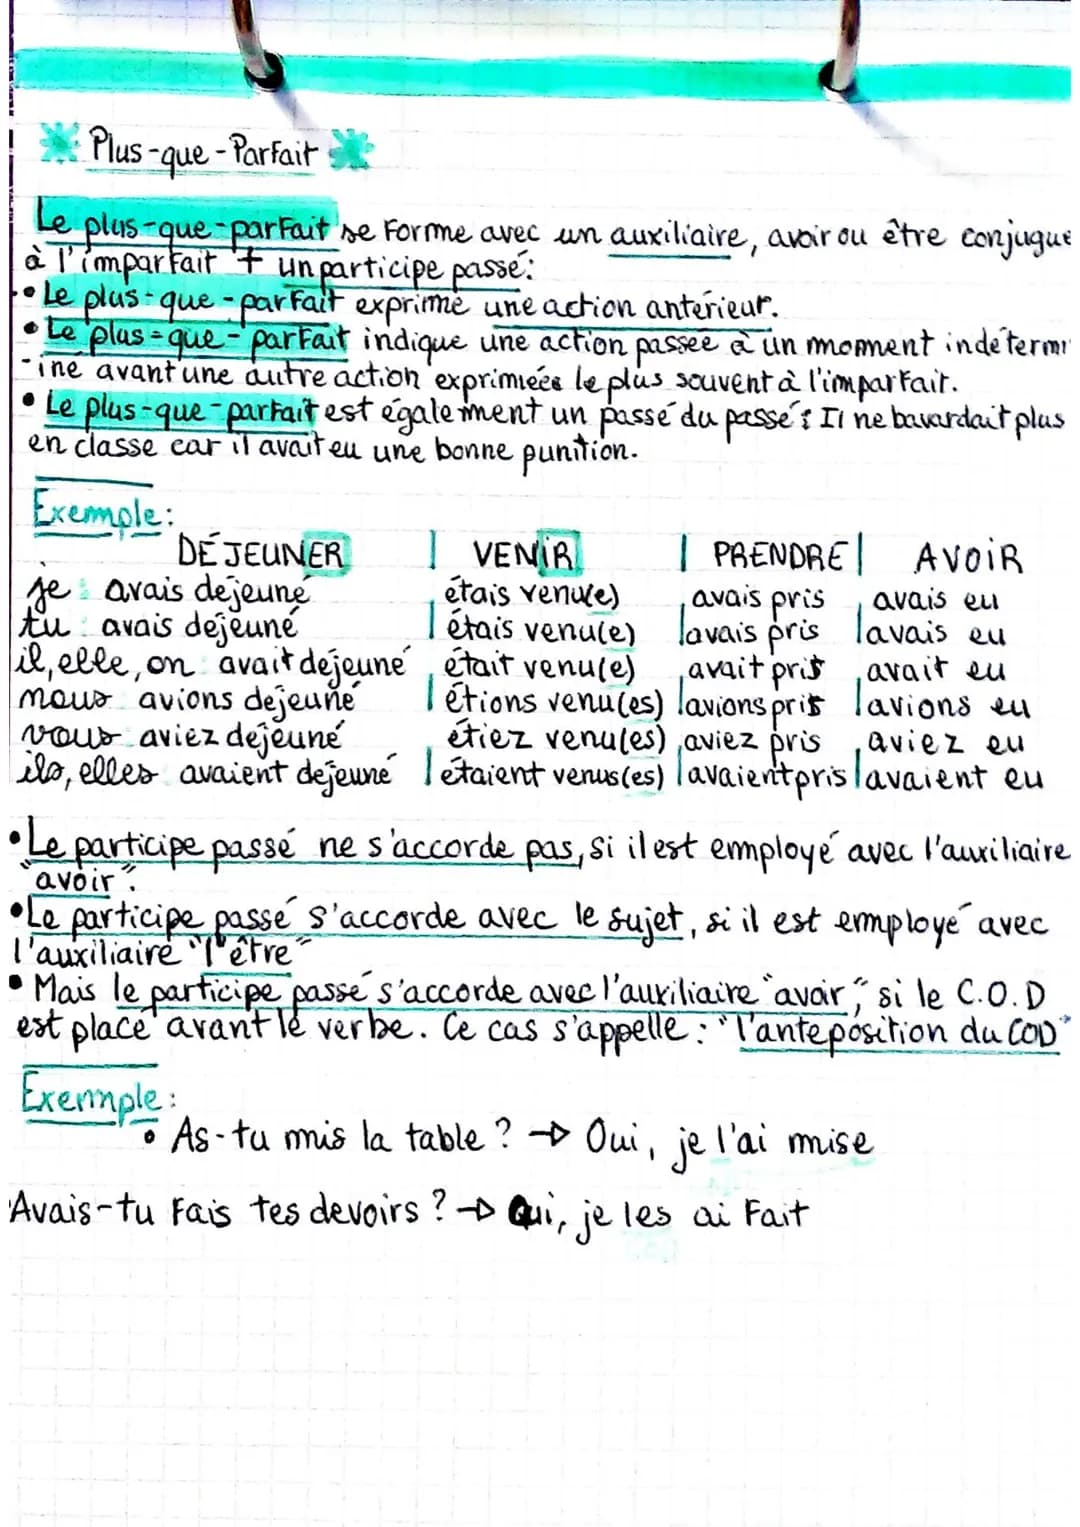 Plus-que-Parfait
Le plus-que-parfait se forme avec un auxiliaire, avoir ou être conjugue
à l'imparfait + un participe passé:
• Le plus-que-parfait exprime une action antérieur.
• Le plus-que-parfait indique une action passée à un moment indétermi
-iné avant une autre action exprimées le plus souvent à l'imparfait.
• Le plus-que-parfait est également un passé du passé: Il ne bavardait plus
en classe car il avait eu une bonne punition.
Exemple:
DÉJEUNER | VENIR | PRENDRE | AVOIR
je : avais déjeuné | étais venu(e) | avais pris | avais eu
tu : avais déjeuné | étais venu(e) | avais pris | avais eu
il, elle, on : avait déjeuné | était venu(e) | avait pris | avait eu
nous : avions déjeuné | étions venu(es) | avions pris | avions eu
vous : aviez déjeuné | étiez venu(es) | aviez pris | aviez eu
ils, elles : avaient déjeuné | étaient venus(es) | avaient pris | avaient eu
• Le participe passé ne s'accorde pas, si il est employé avec l'auxiliaire
"avoir".
• Le participe passé s'accorde avec le sujet, si il est employé avec
l'auxiliaire "l'être"
• Mais le participe passé s'accorde avec l'auxiliaire "avoir", si le C.O.D
est placé avant le verbe. Ce cas s'appelle : "l'anteposition du COD"
Exemple:
• As-tu mis la table ? → Oui, je l'ai mise
Avais-tu fais tes devoirs ? → Oui, je les ai fait